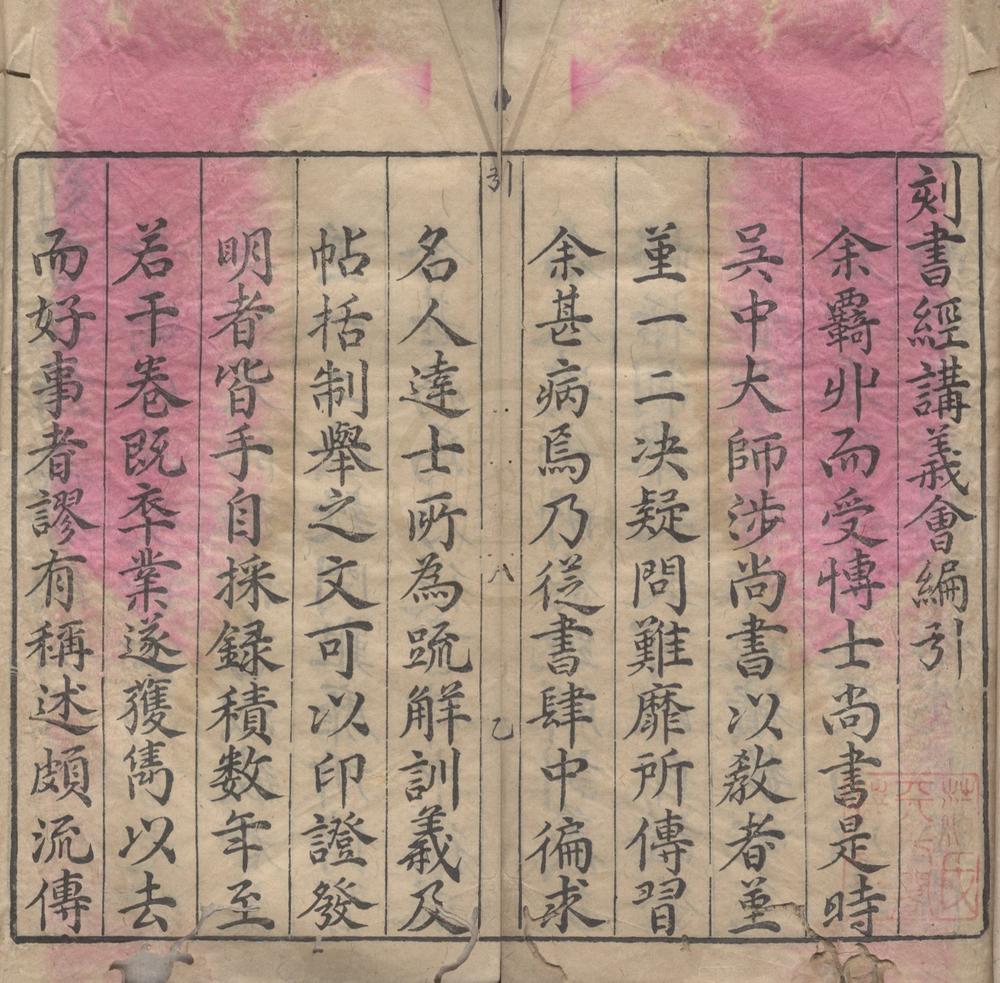 刻書經講義會編引
余覊丱而受愽士尚書是時
吳中大師涉尚書以教者堇
堇一二决疑問難靡所傳習
余甚病焉乃從書肆中徧求
引
八
乙
名人達士所為䟽解訓義及
帖括制舉之文可以印證發
明者皆手自採録積數年至
若干卷既卒業遂獲雋以去
而好事者謬有稱述頗流傳